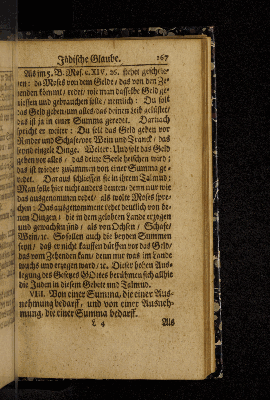 Jüdische Glaube. 167
Als im 5. B. Mos. c. XIV. 26. stehet geschrie-
ben: da Moses von dem Gelde / das von den Ze-
henden kommt / redet / wie man dasselbe Geld ge-
niessen und gebrauchen solle / nemlich: Du solt
das Geld geben um alles / das deinen Leib gelüstet /
das ist ja in einer Summa geredet. Darnach
spricht er weiter: Du solt das Geld geben vor
Rinder und Schafe / vor Wein und Tranck / das
seynd eintzele Dinge. Weiter: Und solt das Geld
geben vor alles / das deine Seele heischen wird;
das ist wieder zusammen von einer Summa ge-
redet. Darauf schliessen sie in ihrem Talmud:
Man solle hier nicht anders deuten / denn nur wie
das ausgenommen redet / als wolte Moses spre-
chen: Das ausgenommene redet deutlich von de-
nen Dingen / die in dem gelobten Lande erzogen
und gewachsen sind / als von Ochsen / Schafe /
Wein / ꝛc. So sollen auch die beyden Summen
seyn / daß er nicht kauffen dürffen vor das Geld /
das vom Zehenden kam / denn nur was im Lande
wuchs und erzogen ward / ꝛc. Dieser hohen Aus-
legung des Gesetzes GOttes berühmen sich allhie
die Juden in diesem Gebete und Talmud.
VIII. Von einer Summa, die einer Aus-
nehmung bedarff, und von einer Ausneh-
mung, die einer Summa bedarff.
L 4 Als